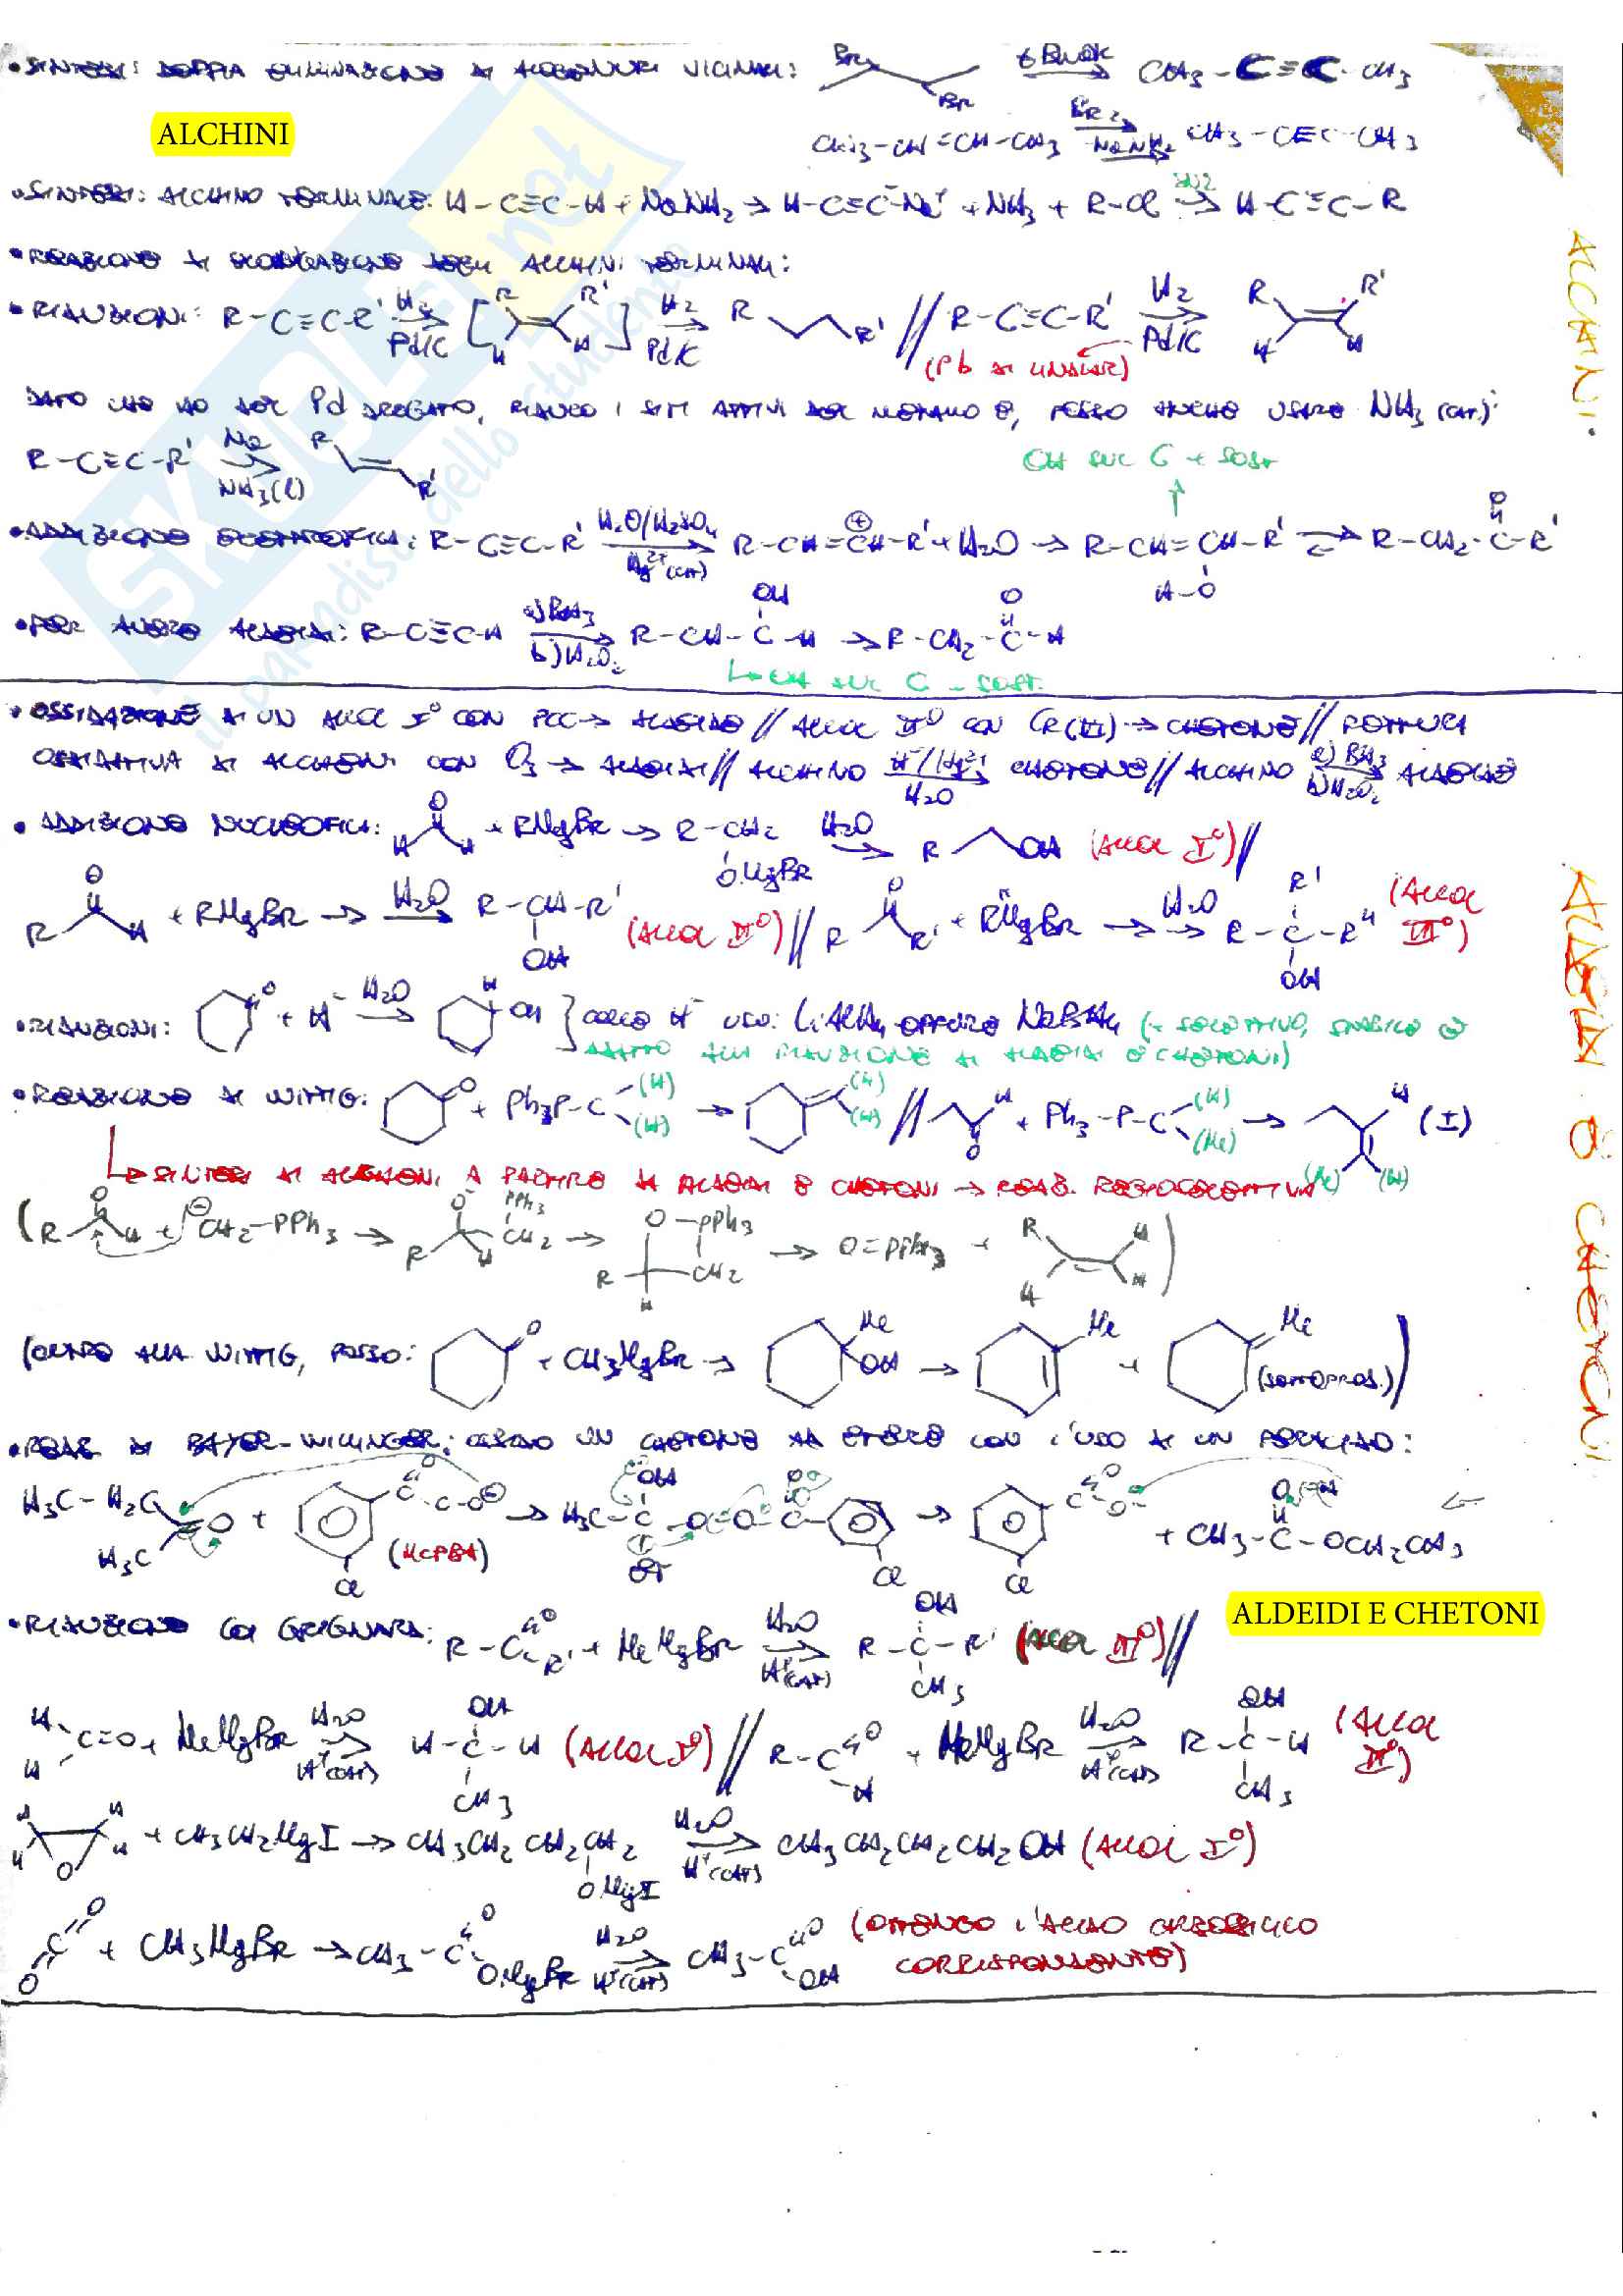 • SINTESI: DOPPIA ELIMINAZIONE DI ALOGENURI VICINALI: Br Br tBuOK → CH₃-C≡C-CH₃
ALCHINI
CH₃-CH=CH-CH₃ Br₂ → NaNH₂ CH₃-C≡C-CH₃
• SINTESI: ALCHINO TERMINALE: H-C≡C-H + NaNH₂ → H-C≡C⁻Na⁺ + NH₃ + R-Cl SN2 → H-C≡C-R
ALCHINI
• REAZIONE DI DEGLI ALCHINI TERMINALI:
• RIDUZIONI: R-C≡C-R' H₂ → Pd/C [R R' H H] H₂ → Pd/C R R' // R-C≡C-R' H₂ → Pd/C R R' H H
(Pb DI LINDLAR)
DATO CHE HO DEL Pd DROGATO, RIDUCO I SITI ATTIVI DEL METALLO E, POSSO ANCHE USARE NH₃
R-C≡C-R' Na → NH₃(l) R R'
OH SUL C + SOST
• ADDIZIONE ELETTROFILA: R-C≡C-R' H₂O/H₂SO₄ → Hg²⁺(CAT) R-CH=CH-R' ⊕ + H₂O → R-CH=CH-R' H-O ⇌ R-CH₂-C-R' O
• PER AVERE ALDEIDI: R-C≡C-H a) BH₃ → b) H₂O₂ R-CH-C-H OH → R-CH₂-C-H O
↳ OH SUL C - SOST.
• OSSIDAZIONE DI UN ALCOL I° CON PCC → ALDEIDE // ALCOL II° CON CR(VI) → CHETONE // ROTTURA
OSSIDATIVA DI ALCHENI CON O₃ → ALDEIDI // ALCHINO H⁺/Hg²⁺ → H₂O CHETONE // ALCHINO a) BH₃ → b) H₂O₂ ALDEIDE
• ADDIZIONE NUCLEOFILA: O H H + RMgBr → R-CH₂ OMgBr H₂O → R OH (ALCOL I°) //
O R H + RMgBr → H₂O → R-CH-R' OH (ALCOL II°) // O R R' + R"MgBr → H₂O → R-C-R" R' OH (ALCOL III°)
ALDEIDI E CHETONI
• RIDUZIONI: O + H⁻ H₂O → H OH } COME H⁻ USO: LiAlH₄ OPPURE NaBH₄ (+ SELETTIVO, STABILE E
ADATTO ALLA RIDUZIONE DI ALDEIDI E CHETONI)
• REAZIONE DI WITTIG: O + Ph₃P-C (H) (H) → (H) (H) // H O + Ph₃-P-C (H) (Me) → H (I)
↳ SINTESI DI ALCHENI A PARTIRE DA ALDEIDI E CHETONI → REAZ. REGIOSELETTIVA (Me) (H)
(R O H + ⊖CH₂-PPh₃ → O⁻ PPh₃ R H CH₂ → O-PPh₃ R CH₂ H → O=PPh₃ + R H H H)
(OLTRE ALLA WITTIG, POSSO: O + CH₃MgBr → Me OH → Me + Me (SOTTOPROD.))
• REAZ DI BAYER-WILLINGER: CHETONE AD ESTERE CON L'USO DI UN PERACIDO:
H₃C-H₂C H₃C O + C O-O⊖ Cl (MCPBA) → H₃C-C OH Et O-O C O Cl → C O O⁻ Cl + CH₃-C-OCH₂CH₃ ←
ALDEIDI E CHETONI
• RIDUZIONE CON GRIGNARD: R-C O R' + MeMgBr H₂O → H⁺(CAT) R-C-R' OH CH₃ (ALCOL III°) //
H H C=O + MeMgBr H₂O → H⁺(CAT) H-C-H OH CH₃ (ALCOL I°) // R-C O H + MeMgBr H₂O → H⁺(CAT) R-C-H OH CH₃ (ALCOL II°)
H H H O + CH₃CH₂MgI → CH₃CH₂CH₂CH₂ OMgI H₂O → H⁺(CAT) CH₃CH₂CH₂CH₂OH (ALCOL I°)
O C O + CH₃MgBr → CH₃-C O OMgBr H₂O → H⁺(CAT) CH₃-C O OH (OTTENGO L'ACIDO CARBOSSILICO
CORRISPONDENTE)